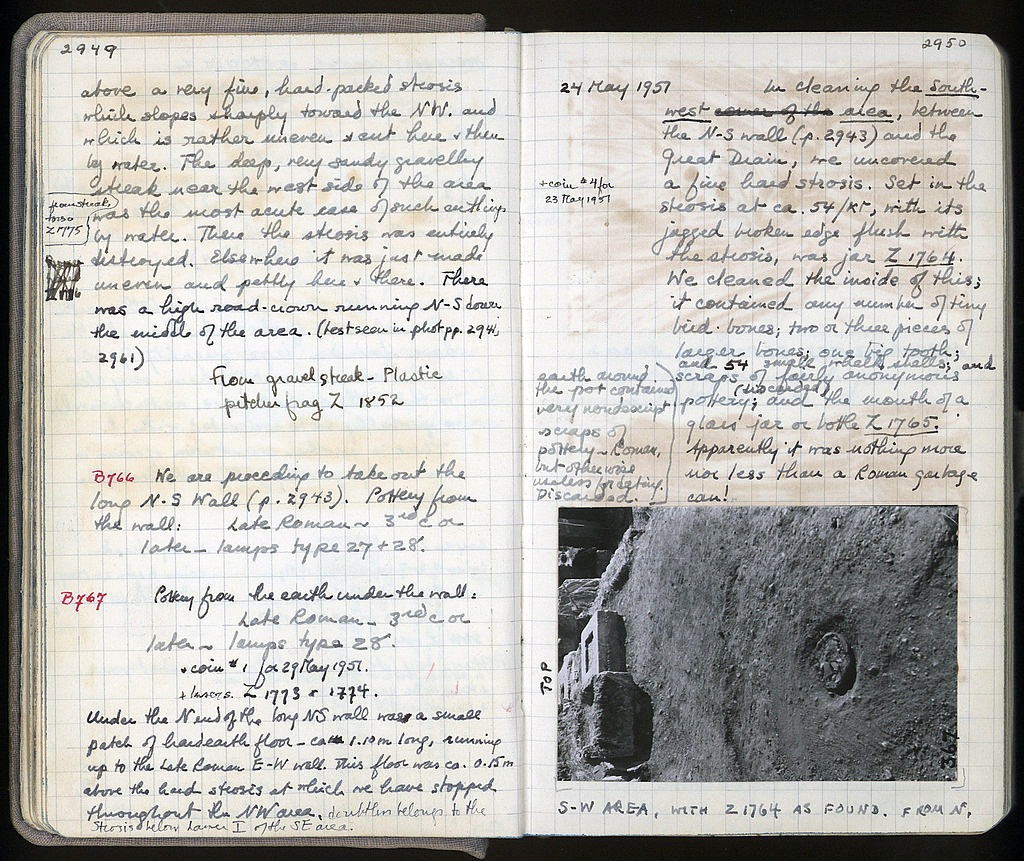 2949
above a very fine, hard-packed strosis
which slopes sharply toward the NW. and
which is rather uneven & cut here & there
by water. The deep, very sandy gravelly
streak near the west side of the area
was the most acute case of such cutting
by water. There the strosis was entirely
destroyed. Elsewhere it was just made
uneven and pebbly here & there. There
was a high road-crown running N-S down
the middle of the area. (best seen in phot pp. 2941,
2961)
from streak,
torso
Z 1775
From gravel streak - Plastic
pitcher frag Z 1852
B766 We are proceeding to take out the
long N-S Wall (p. 2943). Pottery from
the wall: Late Roman - 3rd c or
later - lamps type 27 + 28.
B767 Pottery from the earth under the wall:
Late Roman - 3rd c or
later - lamps type 28.
+ coin #1 for 29 May 1951.
+ Inscrs. Z 1773 & 1774.
Under the N end of the long NS wall was a small
patch of hard earth floor - ca 1.10 m long, running
up to the Late Roman E-W wall. This floor was ca. 0.15 m
above the hard strosis at which we have stopped
throughout the NW area, doubtless belongs to the
strosis below Layer I of the SE area.
2950
24 May 1951 In cleaning the South-
west corner of the area, between
the N-S wall (p. 2943) and the
Great Drain, we uncovered
a fine hard strosis. Set in the
strosis at ca. 54/ΚΓ, with its
jagged broken edge flush with
the strosis, was jar Z 1764.
We cleaned the inside of this;
it contained any number of tiny
bird-bones; two or three pieces of
larger bones; one big tooth;
and 54 small shells; and
scraps of fairly anonymous
(discarded)
pottery; and the mouth of a
glass jar or bottle Z 1765.
Apparently it was nothing more
nor less than a Roman garbage
can!
+ coin #4 for
23 May 1951
earth around
the pot contained
very nondescript
scraps of
pottery - Roman,
but otherwise
useless for dating.
Discarded.
TOP
S-W AREA, WITH Z 1764 AS FOUND. FROM N.